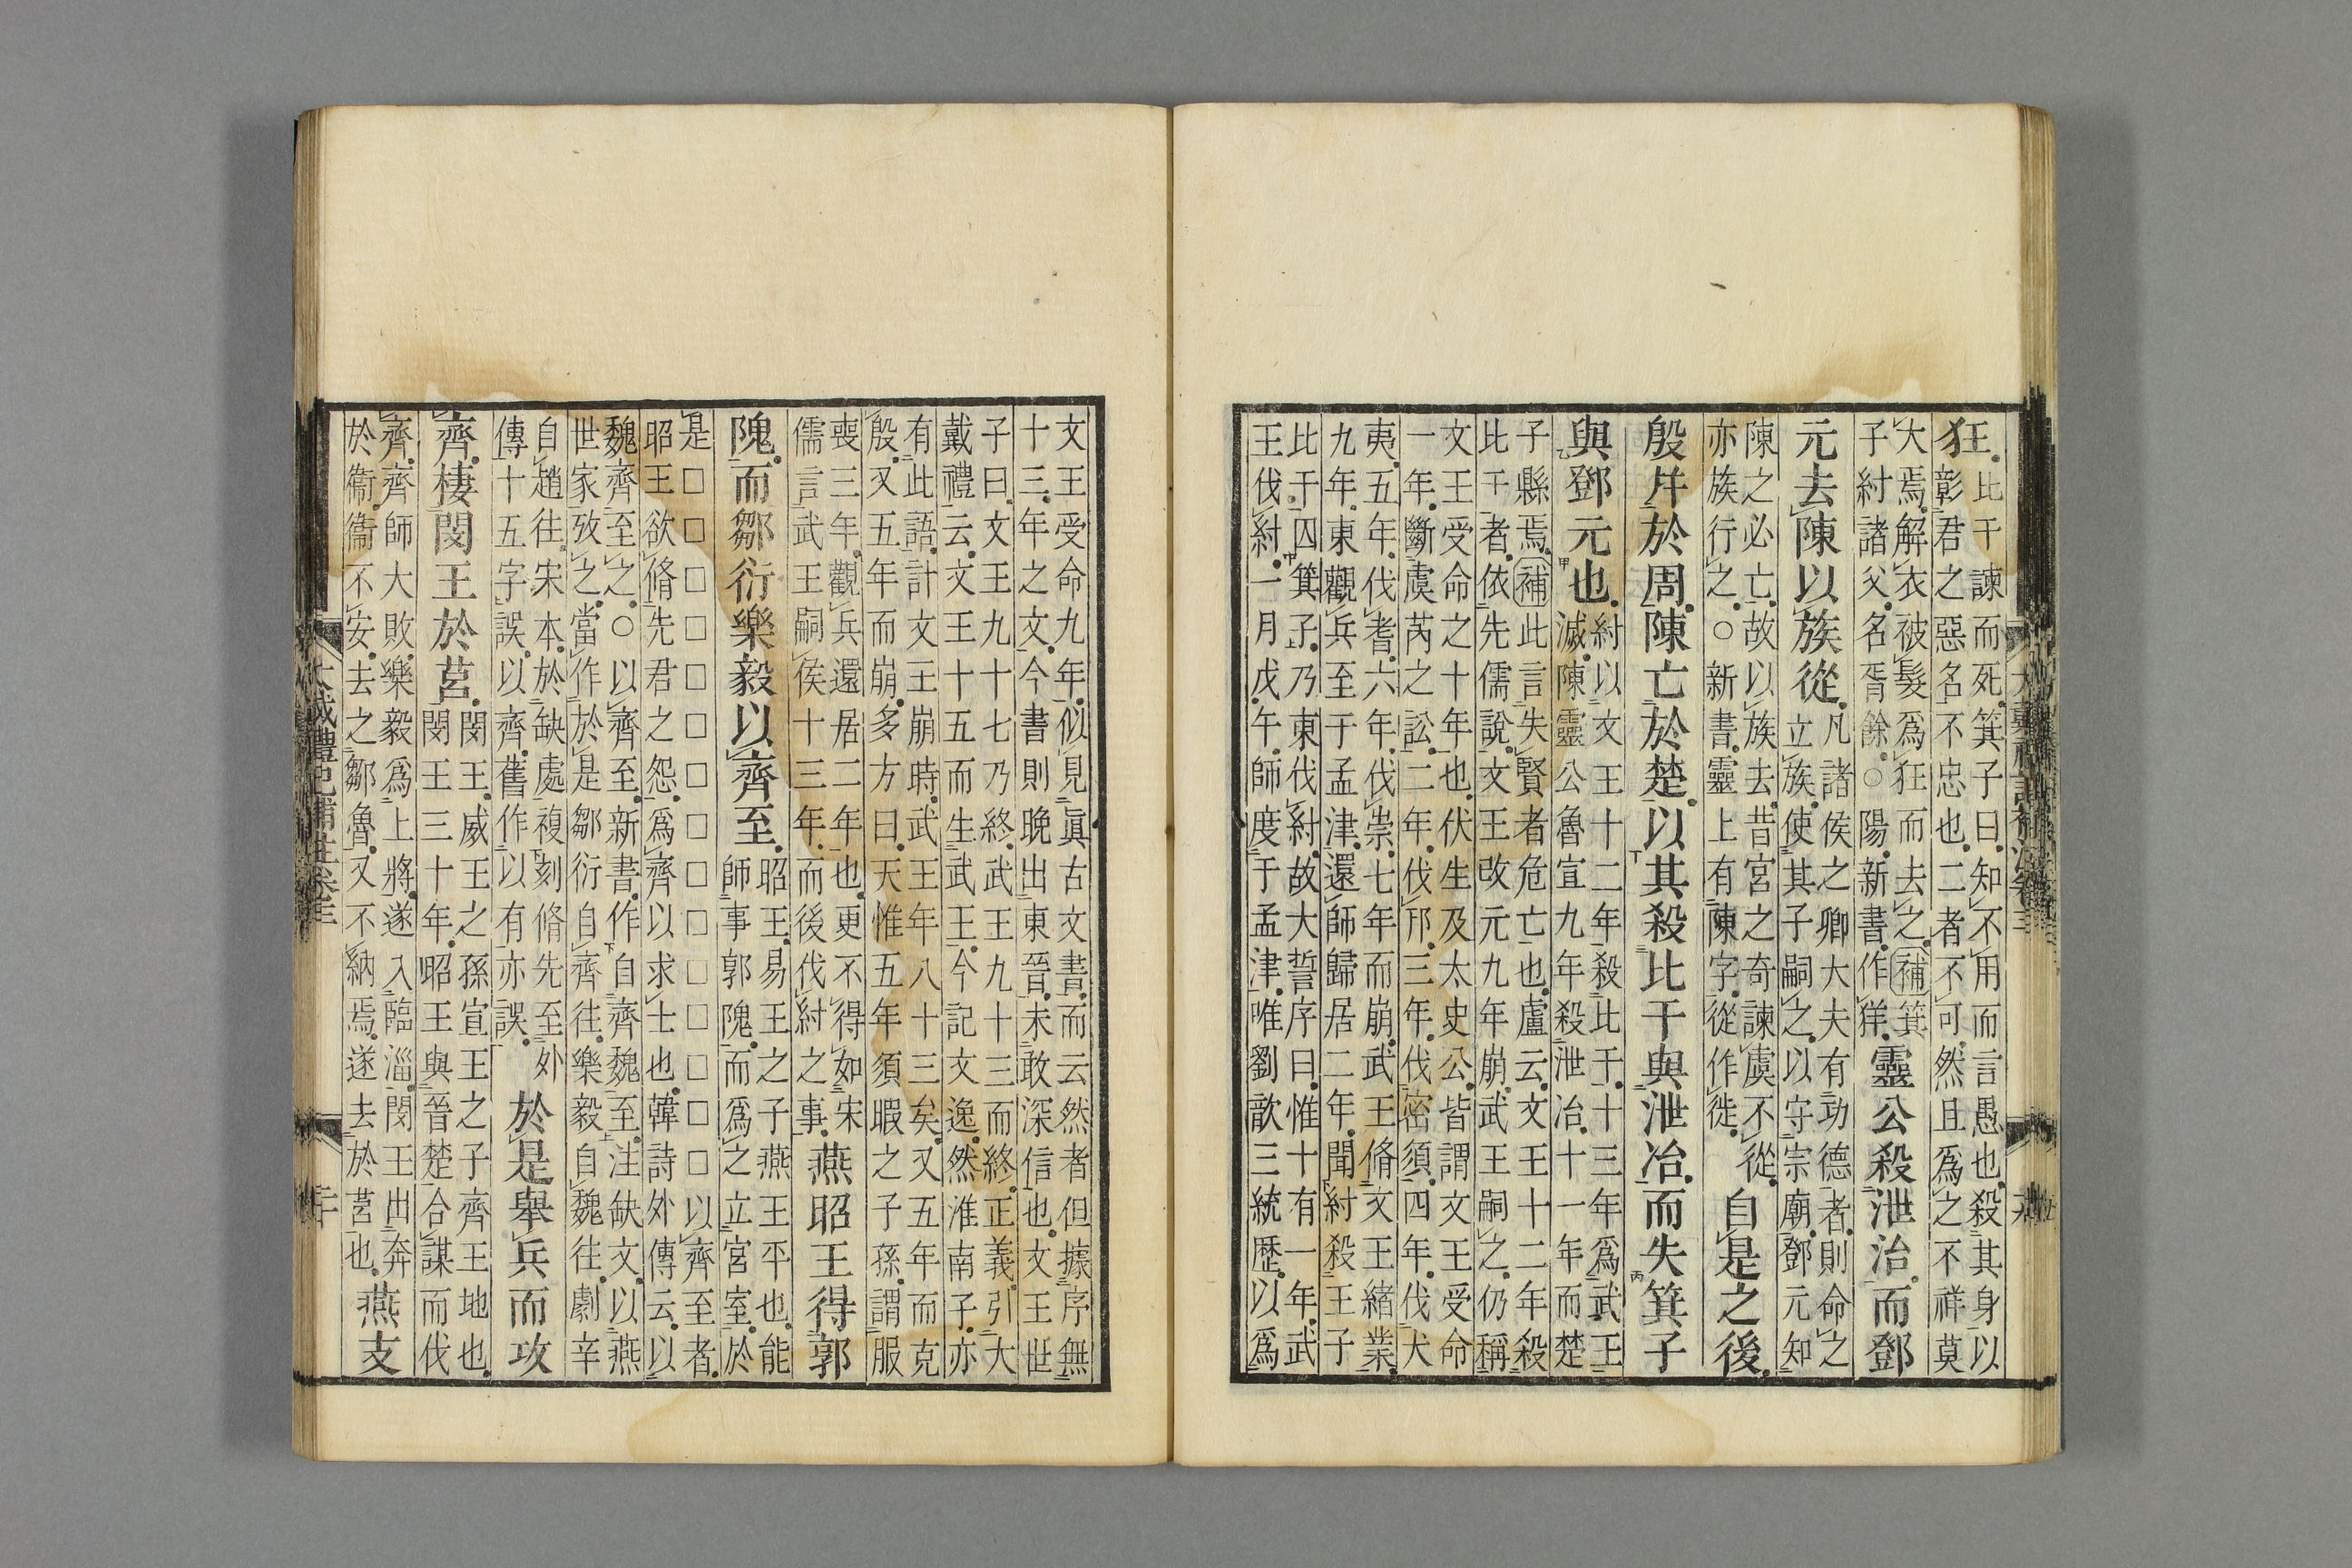 狂比干諫而死箕子曰知不用而言愚也殺其身以
彰君之惡名不忠也二者不可然且爲之不祥莫
大焉解衣被髮爲狂而去之補箕
子紂諸父名胥餘○陽新書作猉靈公殺泄冶而鄧
元去陳以族從凡諸侯之卿大夫有功德者則命之
立族使其子嗣之以守宗廟鄧元知
陳之必亡故以族去昔宮之奇諫虞不從
亦族行之○新書靈上有陳字從作徙自是之後
殷幷於周陳亡於楚以其殺比干與泄冶而失箕子
與鄧元也紂以文王十二年殺比干十三年爲武王
滅陳靈公魯宣九年殺泄冶十一年而楚
子縣焉補此言失賢者危亡也盧云文王十二年殺
比干者依先儒說文王改元九年崩武王嗣之仍稱
文王受命之十年也伏生及太史公皆謂文王受命
一年斷虞芮之訟二年伐邘三年伐密須四年伐犬
夷五年伐耆六年伐崇七年而崩武王脩文王緒業
九年東觀兵至于孟津還師歸居二年聞紂殺王子
比干囚箕子乃東伐紂故大誓序曰惟十有一年武
王伐紂一月戊午師度于孟津唯劉歆三統歷以爲
文王受命九年似見眞古文書而云然者但據序無
十三年之文今書則晚出東晉未敢深信也文王世
子曰文王九十七乃終武王九十三而終正義引大
戴禮云文王十五而生武王今記文逸然淮南子亦
有此語計文王崩時武王年八十三矣又五年而克
殷又五年而崩多方曰天惟五年須暇之子孫謂服
喪三年觀兵還居二年也更不得如宋
儒言武王嗣侯十三年而後伐紂之事燕昭王得郭
隗而鄒衍樂毅以齊至昭王易王之子燕王平也能
師事郭隗而爲之立宮室於
是□□□□□□□□□□□□□□□以齊至者
昭王欲脩先君之怨爲齊以求士也韓詩外傳云以
魏齊至之○以齊至新書作自齊魏至注缺文以燕
世家攷之當作於是鄒衍自齊往樂毅自魏往劇辛
自趙往宋本於缺處複刻脩先至外
傳十五字誤以齊舊作以有亦誤於是舉兵而攻
齊棲閔王於莒閔王威王之孫宣王之子齊王地也
閔王三十年昭王與晉楚合謀而伐
齊齊師大敗樂毅爲上將遂入臨淄閔王出奔
於衞衞不安去之鄒魯又不納焉遂去於莒也燕支
大戴禮記補注卷三
二十